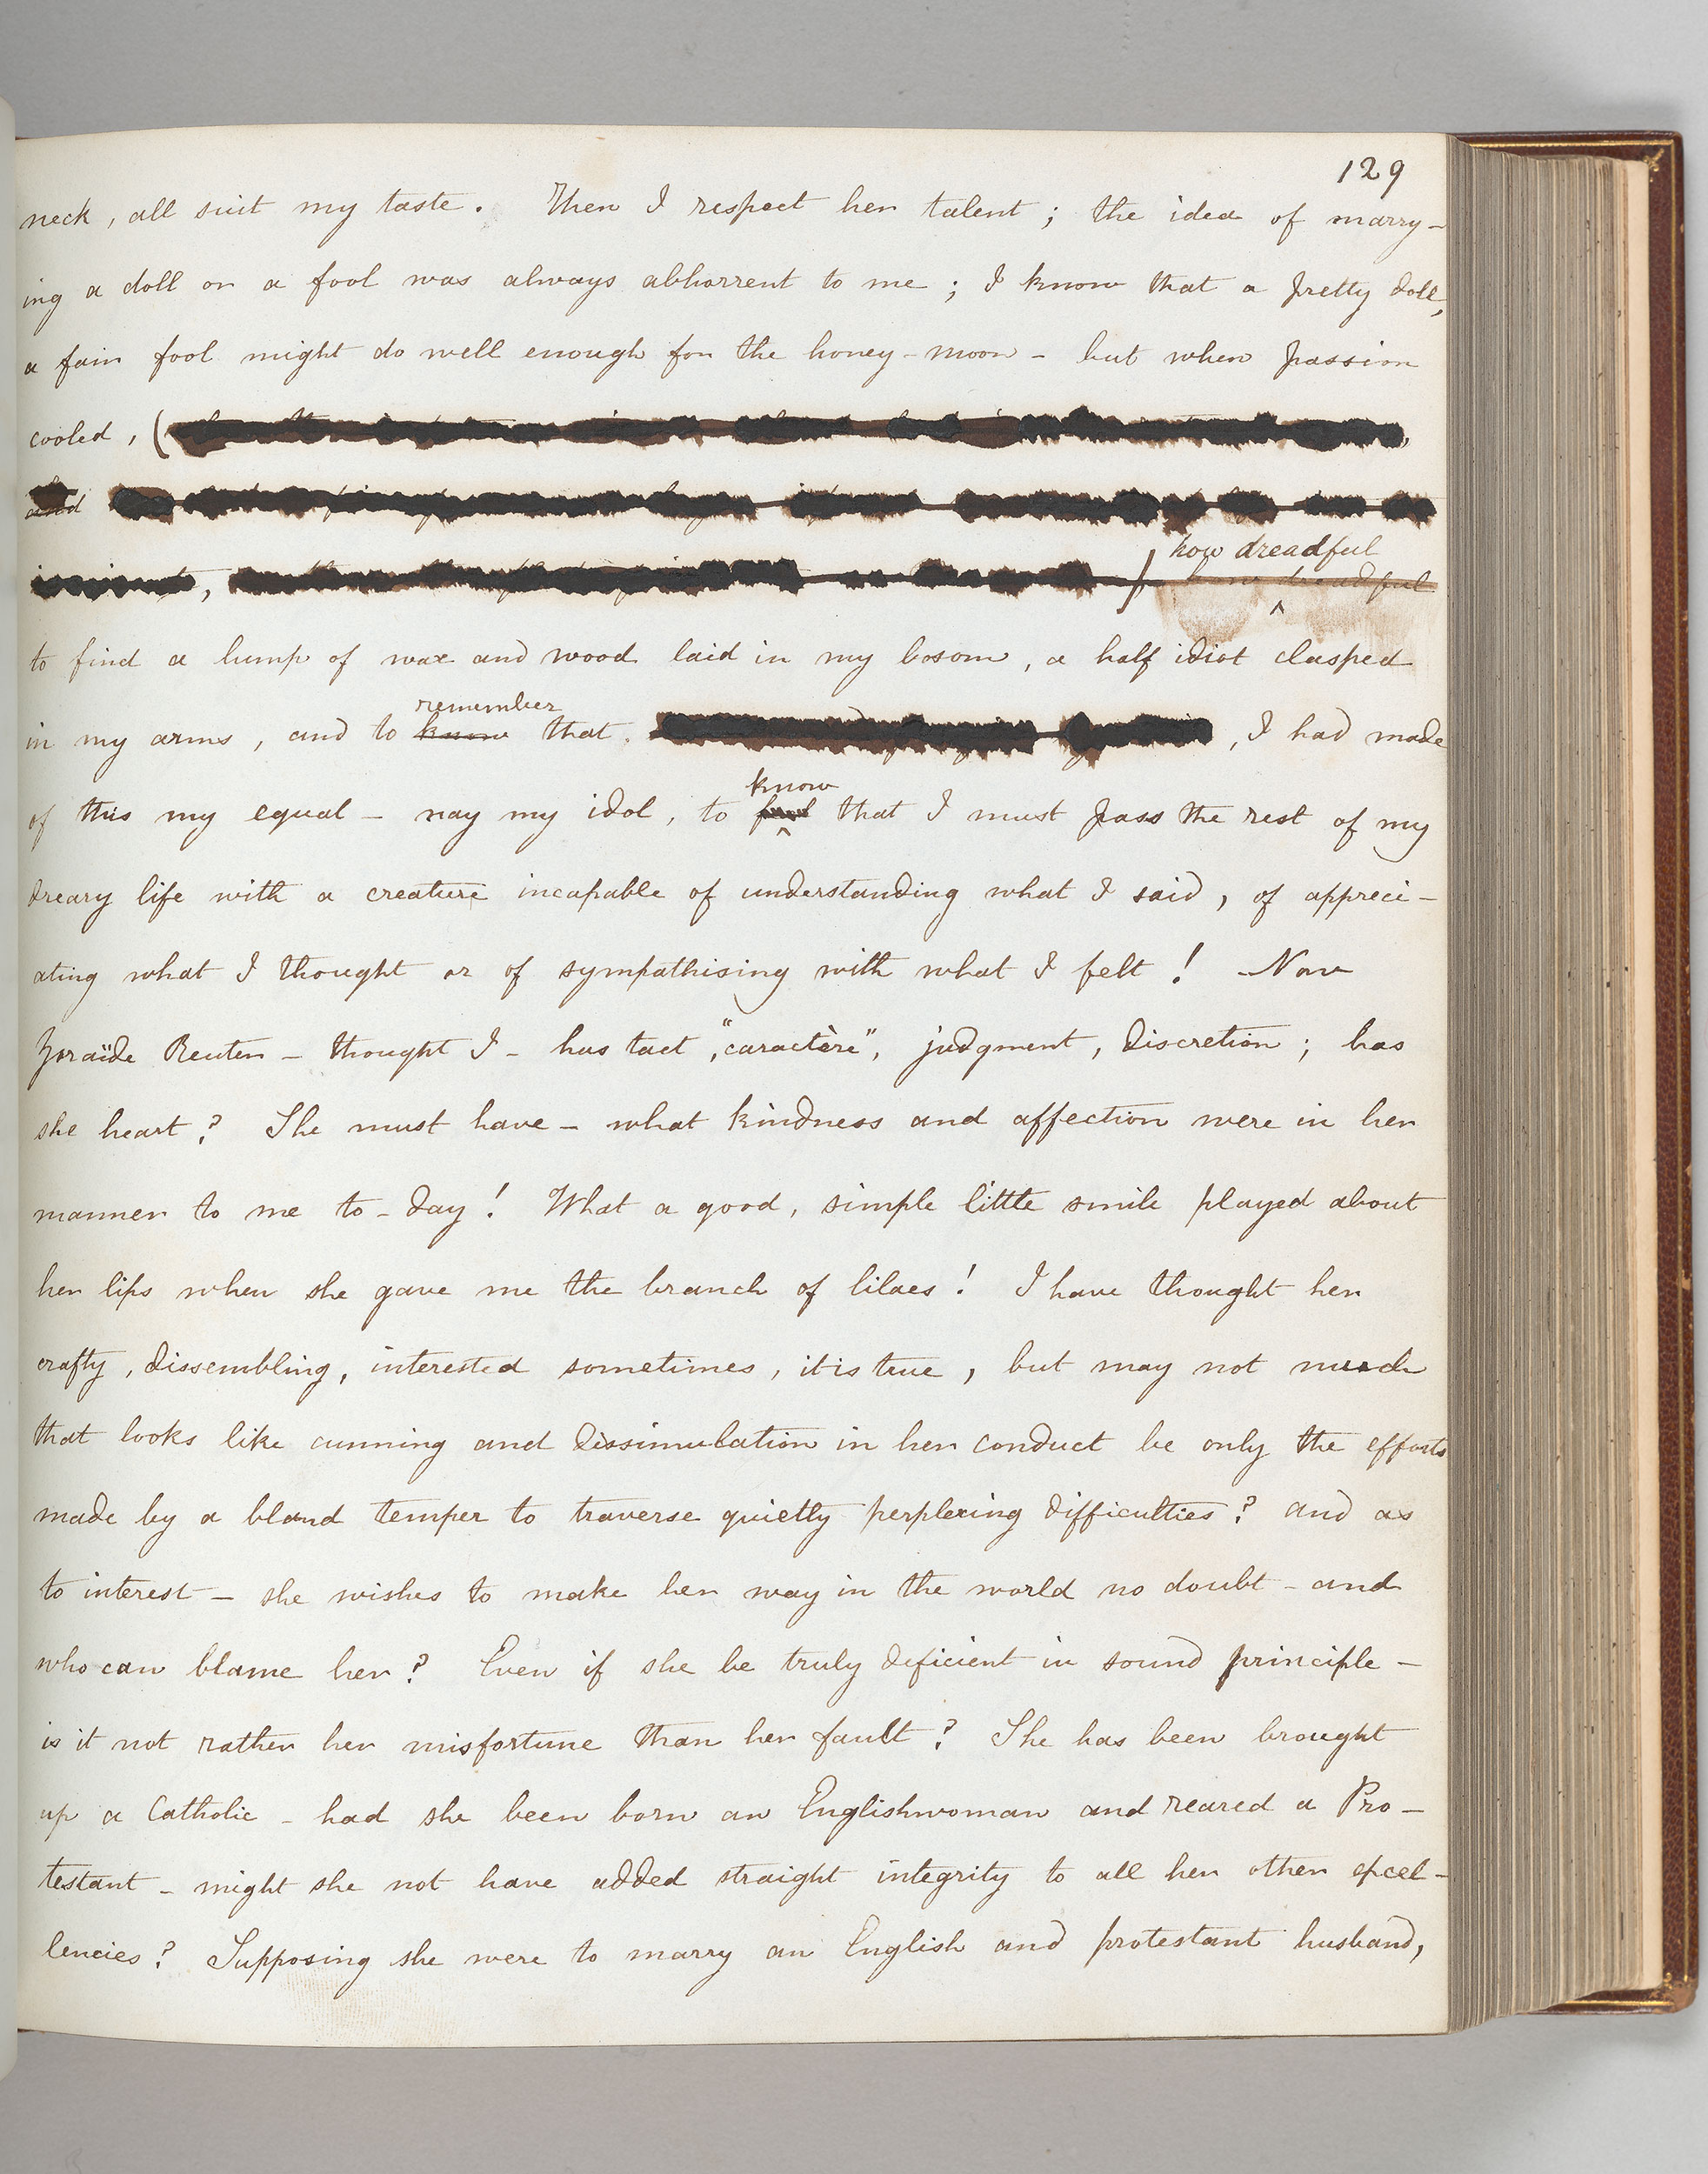 129
neck, all suit my taste. Then I respect her talent; the idea of marry-
ing a doll or a fool was always abhorrent to me; I know that a pretty doll,
a fair fool might do well enough for the honey-moon - but when passion
cooled, (
how dreadful
how dreadful
to find a lump of wax and wood laid in my bosom, a half idiot clasped
remember
in my arms, and to know that , I had made
know
of this my equal - nay my idol, to that I must pass the rest of my
dreary life with a creature incapable of understanding what I said, of appreci-
ating what I thought or of sympathising with what I felt! Now
Zoraïde Reuter - thought I - has tact, "caractère", judgment, discretion; has
she heart? She must have - what kindness and affection were in her
manner to me to-day! What a good, simple little smile played about
her lips when she gave me the branch of lilacs! I have thought her
crafty, dissembling, interested sometimes, it is true, but may not much
that looks like cunning and dissimulation in her conduct be only the efforts
made by a bland temper to traverse quietly perplexing difficulties? and as
to interest - she wishes to make her way in the world no doubt - and
who can blame her? Even if she be truly deficient in sound principle -
is it not rather her misfortune than her fault? She has been brought
up a Catholic - had she been born an Englishwoman and reared a Pro-
testant - might she not have added straight integrity to all her other excel-
lencies? Supposing she were to marry an English and protestant husband,